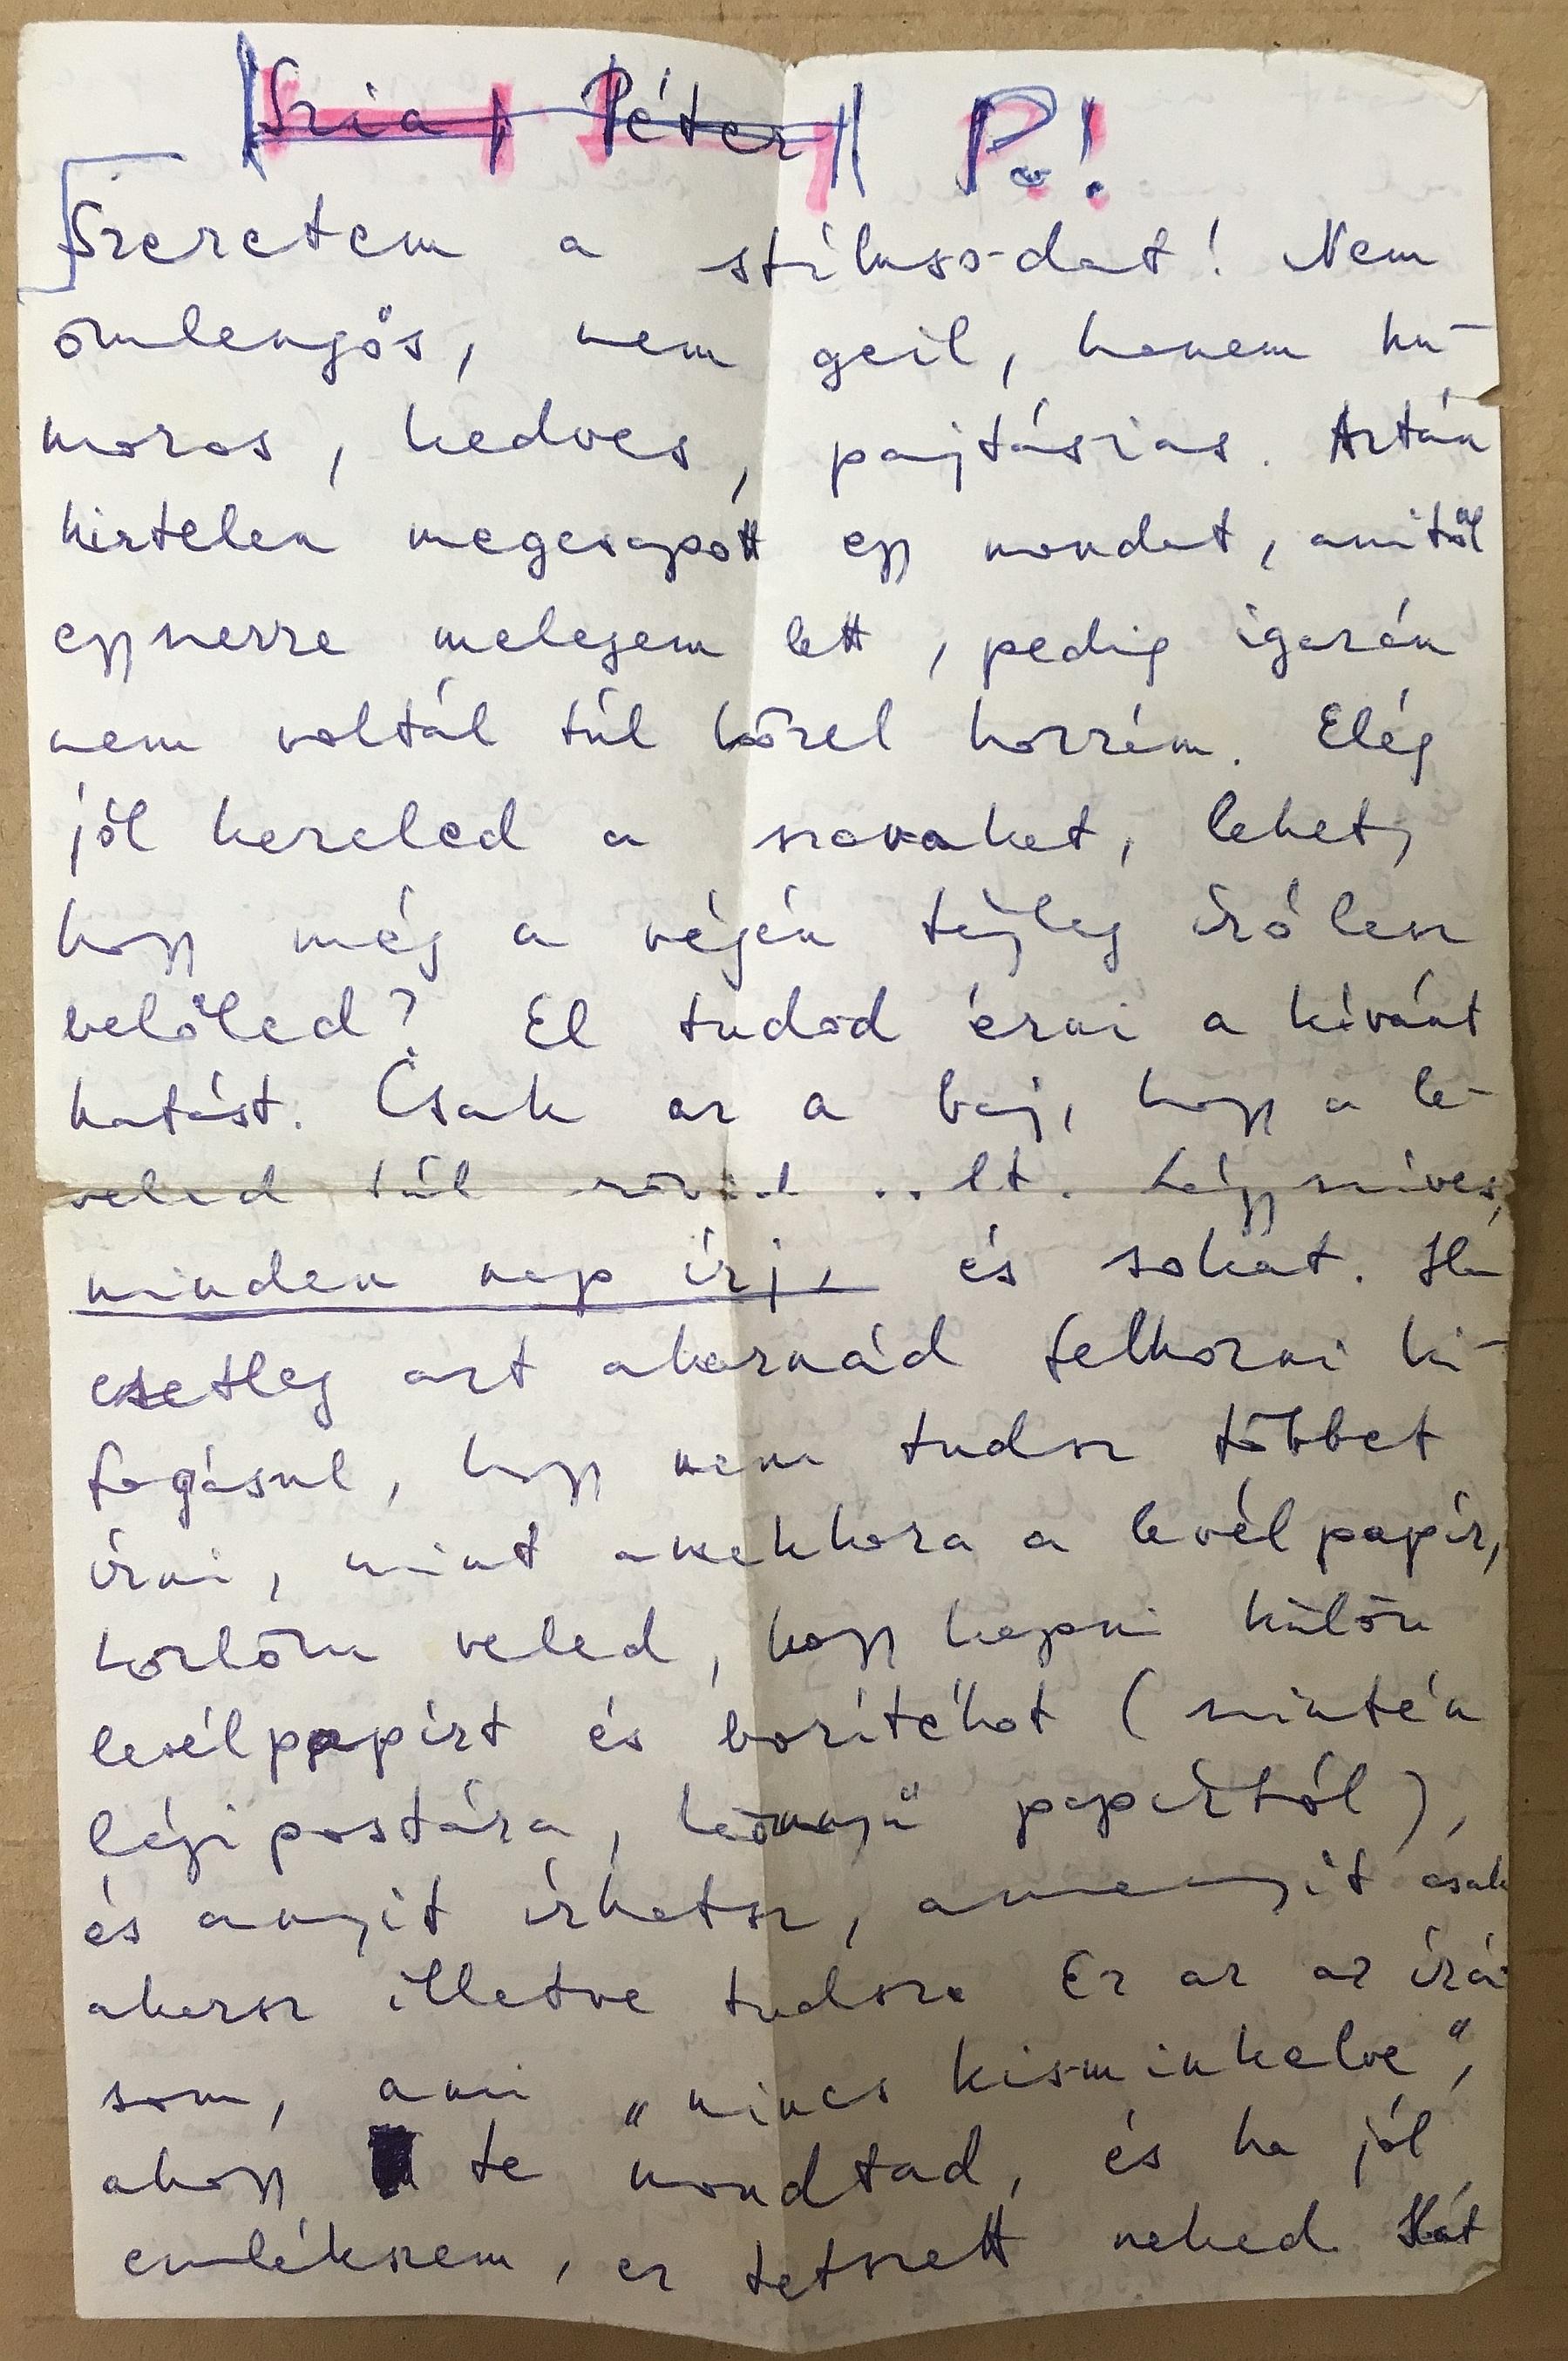 Szia, Péter! P.!
Szeretem a stílusodat! Nem
ömlengős, nem geil, hanem hu-
moros, kedves, pajtásias. Aztán
hirtelen megcsapott egy mondat, amitől
egyszerre melegem lett, pedig igazán
nem voltál túl közel hozzám. Elég
jól kezeled a szavaket, lehet,
hogy még a végén tényleg író lesz
belőled? El tudod érni a kívánt
hatást. Csak az a baj, hogy a le-
veled túl rövid volt. Légy szíves,
minden nap írj, és sokat. Ha
esetleg azt akarnád felhozni ki-
fogásul, hogy nem tudsz többet
írni, mint amekkora a levélpapír,
közlöm veled, hogy kapni külön
levélpapírt és borítékot (szintén
légipostára, könnyű papírból),
és annyit írhatsz, amennyit csak
akarsz illetve tudsz. Ez az az írá-
som, ami „nincs kisminkelve",
ahogy te mondtad, és ha jól
emlékszem, ez tetszett neked. Hát